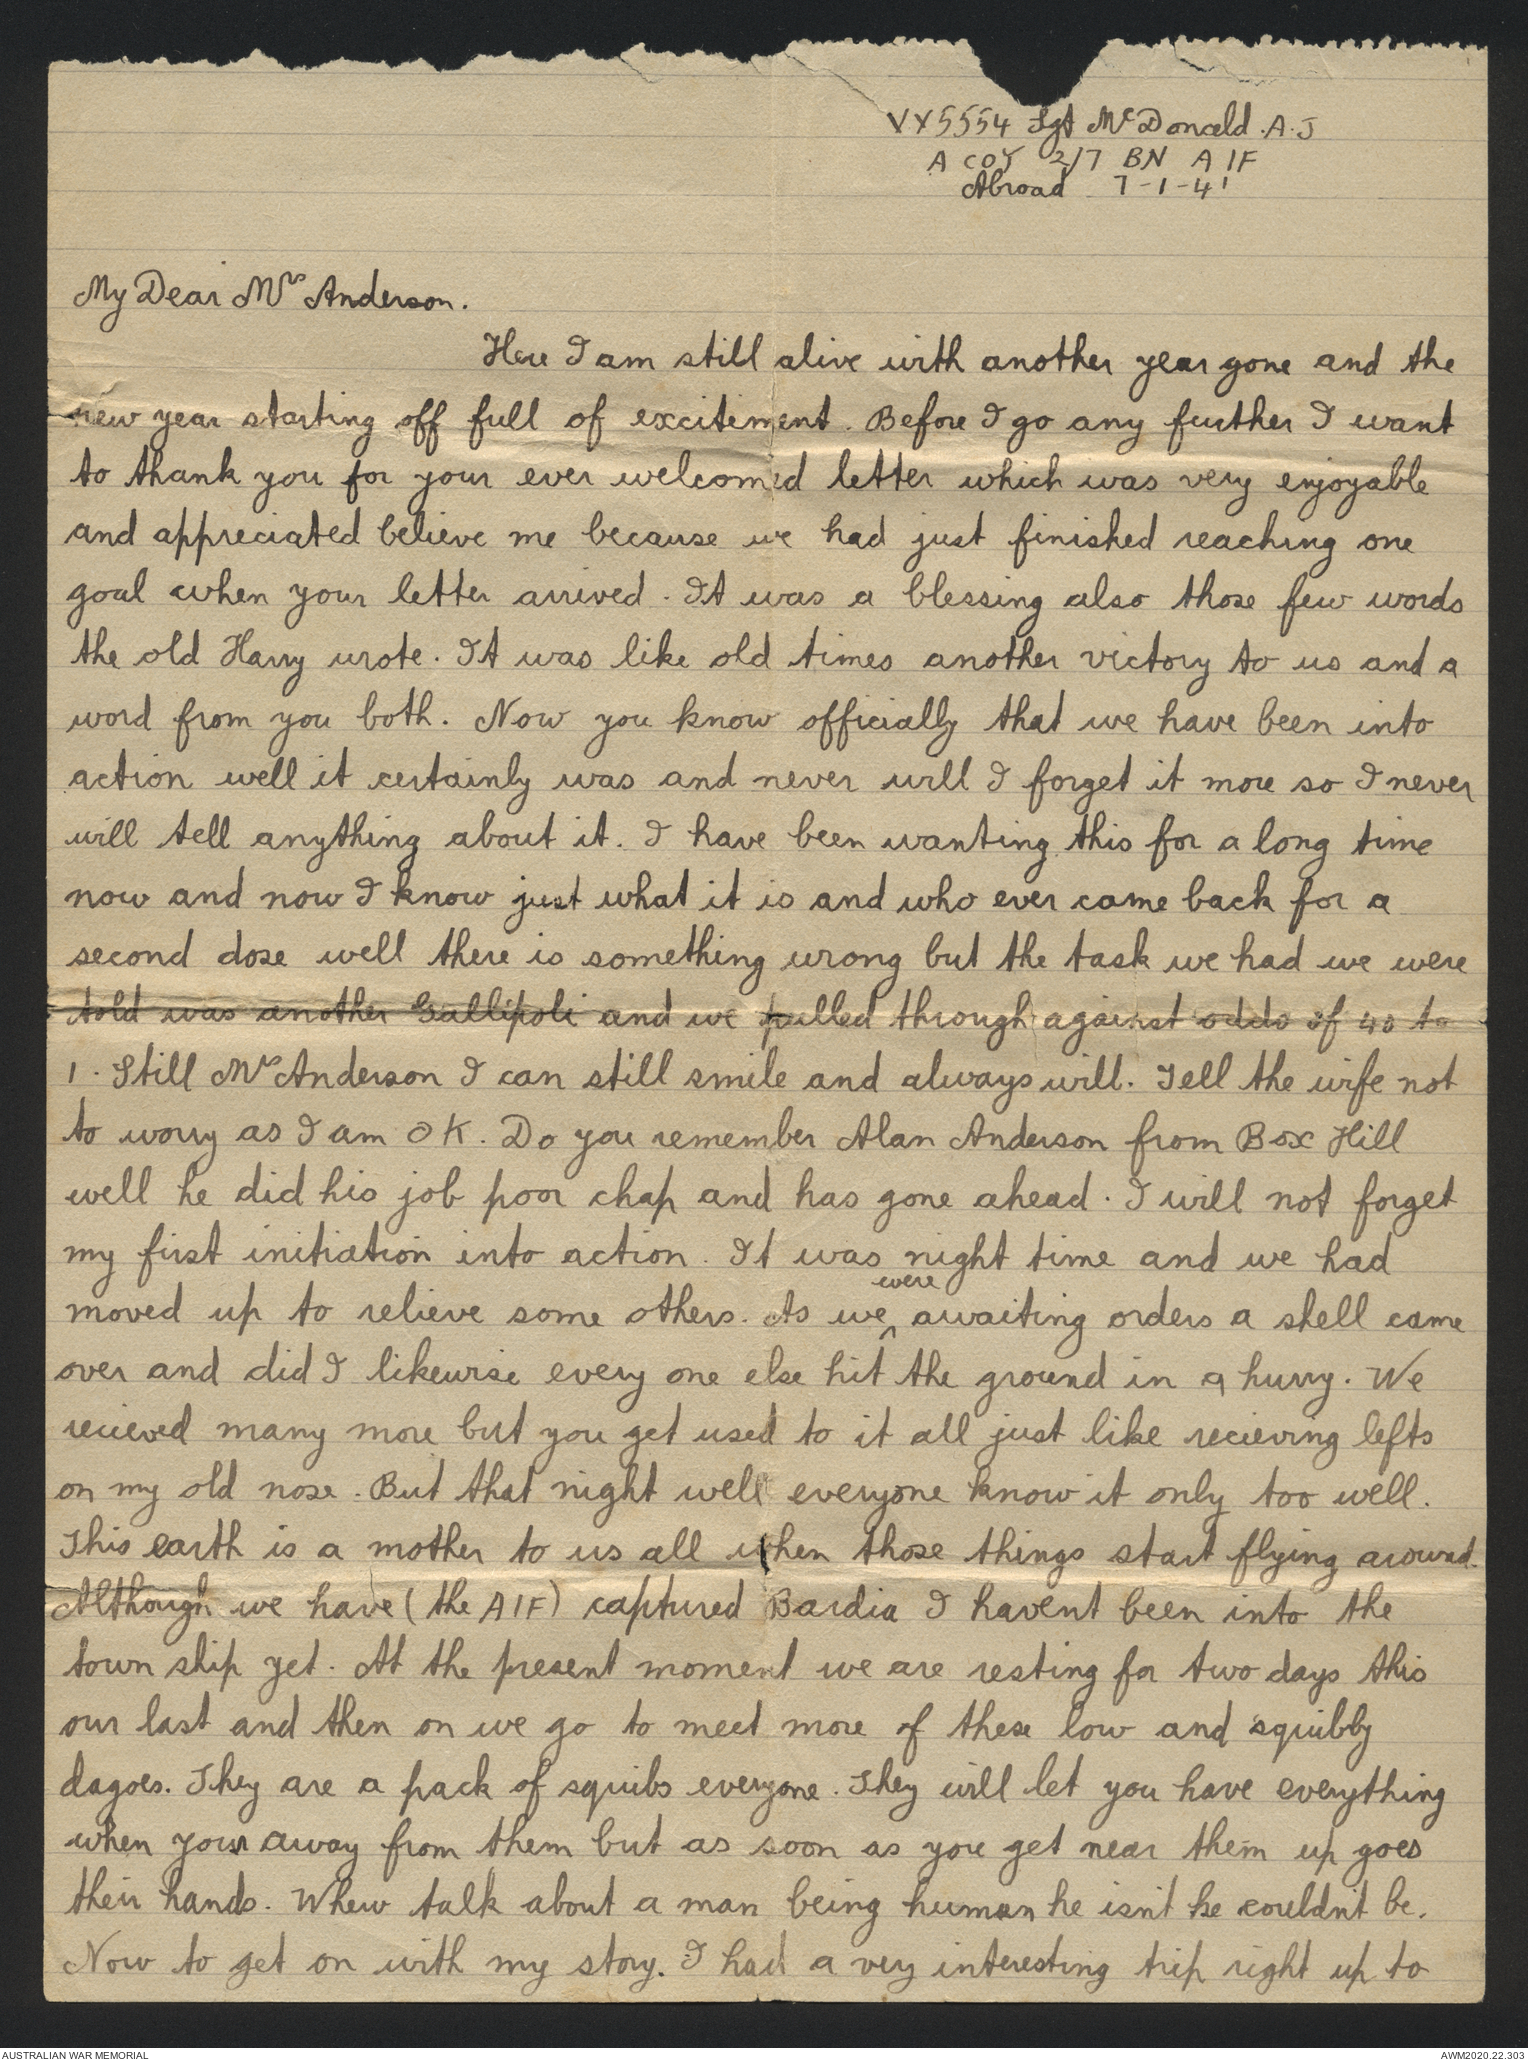 VX5554 Sgt McDonald. A. J
A COY 2/7 BN A IF
Abroad 7-1-41
My Dear Mrs Anderson.
Here I am still alive with another year gone and the
new year starting off full of excitiment. Before I go any further I want
to thank you for your ever welcomed letter which was very enjoyable
and appreciated believe me because we had just finished reaching one
goal when your letter arrived. It was a blessing also those few words
the old Harry wrote. It was like old times another victory to us and a
word from you both. Now you know officially that we have been into
action well it certainly was and never will I forget it more so I never
will tell anything about it. I have been wanting this for a long time
now and now I know just what it is and who ever came back for a
second dose well there is something wrong but the task we had we were
told was another Gallipoli and we pulled through against odds of 40 to
1. Still Mrs Anderson I can still smile and always will. Tell the wife not
to worry as I am OK. Do you remember Alan Anderson from Box Hill
well he did his job poor chap and has gone ahead. I will not forget
my first initiation into action. It was night time and we had
moved up to relieve some others. As we were awaiting orders a shell came
over and did I likewise every one else hit the ground in a hurry. We
recieved many more but you get used to it all just like recieving lefts
on my old nose. But that night well everyone know it only too well.
This earth is a mother to us all when those things start flying around.
Although we have (the AIF) captured Bardia I havent been into the
town ship yet. At the present moment we are resting for two days this
our last and then on we go to meet more of these low and squibby
dagoes. They are a pack of squibs everyone. They will let you have everything
when your away from them but as soon as you get near them up goes
their hands. Whew talk about a man being human he isn't he couldn't be.
Now to get on with my story. I had a very interesting trip right up to
AUSTRALIAN WAR MEMORIAL
AWM2020.22.303